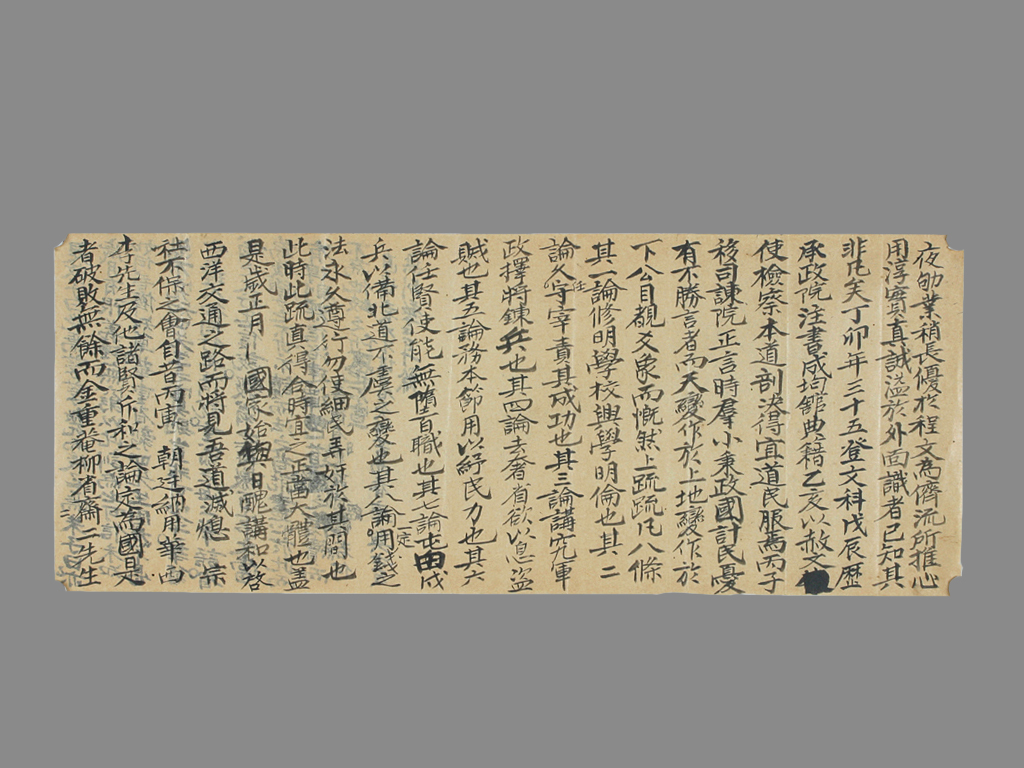 夜勤業稍長優於程文爲儕流所推心
用淳實眞誠溢於外面識者已知其
非凡矣丁卯年三十五登文科戊辰歷
承政院注書成均館典籍乙亥以赦文
使檢察本道剖決得宜道民服焉丙子
移司諫院正言時羣小秉政國計民憂
有不勝言者而天變作於上地變作於
下公目覩爻象而慨然上疏疏凡八條
其一論修明學校興學明倫也其二
論久任守宰責其成功也其三論講究軍
政擇將鍊兵也其四論去奢省欲以息盜
賊也其五論務本節用以紓民力也其六
論任賢使能無隳百職也其七論屯田戍
兵以備北道不虞之變也其八論用錢之
法永久遵行勿使細民弄奸於其間也
此時此疏直得合時宜之正當大體也盖
是歲正月 國家始與日醜講和以啓
西洋交通之路而將見吾道滅熄 宗
社不保之會自昔而寓 朝廷納用華西
李先生及他諸賢斥和之論定爲國是
者破敗無餘而金重菴柳省齋二先生